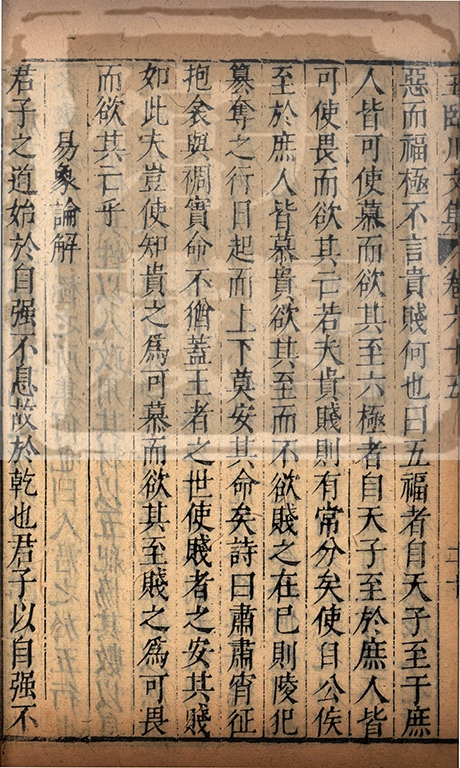 王臨川文集 卷六十五 二十
惡而福極不言貴賤何也曰五福者自天子至于庶
人皆可使慕而欲其至六極者自天子至於庶人皆
可使畏而欲其亡若夫貴賤則有常分矣使自公侯
至於庶人皆慕貴欲其至而不欲賤之在已則陵犯
篡奪之行日起而上下莫安其命矣詩曰肅肅宵征
抱衾與裯寔命不猶蓋王者之世使賤者之安其賤
如此夫豈使知貴之爲可慕而欲其至賤之爲可畏
而欲其亡乎
易象論解
君子之道始於自强不息故於乾也君子以自强不